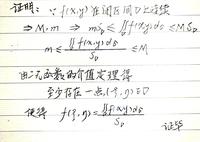 证明: ∵ f(x,y) 在闭区间D上连续
⇒ M, m ⇒ mS_D ≤ ∬f(x,y)dδ ≤ MS_D
m ≤ ∬f(x,y)dδ / S_D ≤ M
由二元函数的介值定理得
至少存在一点(ξ,η)∈D
使得 f(ξ,η) = ∬f(x,y)dδ / S_D
证毕